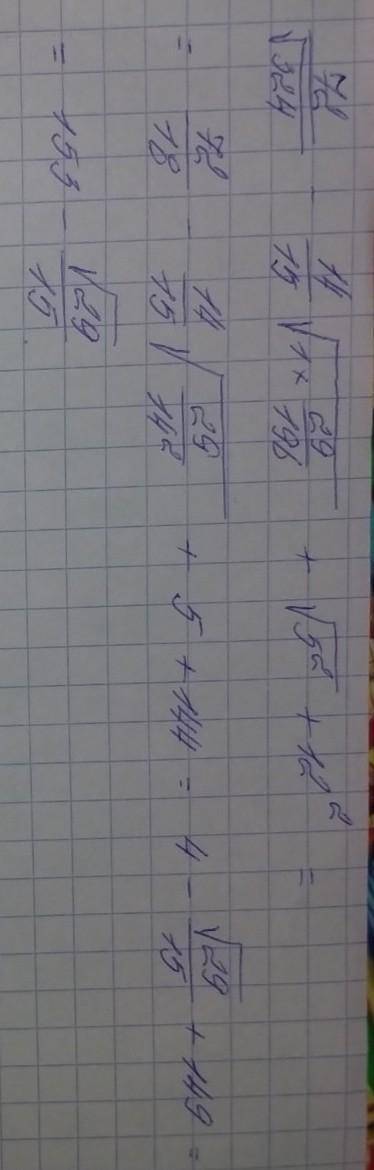 72/√324 - 14/15 √(1 × 29/196) + √5² + 12² =
= 72/18 - 14/15 √(29/14²) + 5 + 144 = 4 - √29/15 + 149 =
= 153 - √29/15